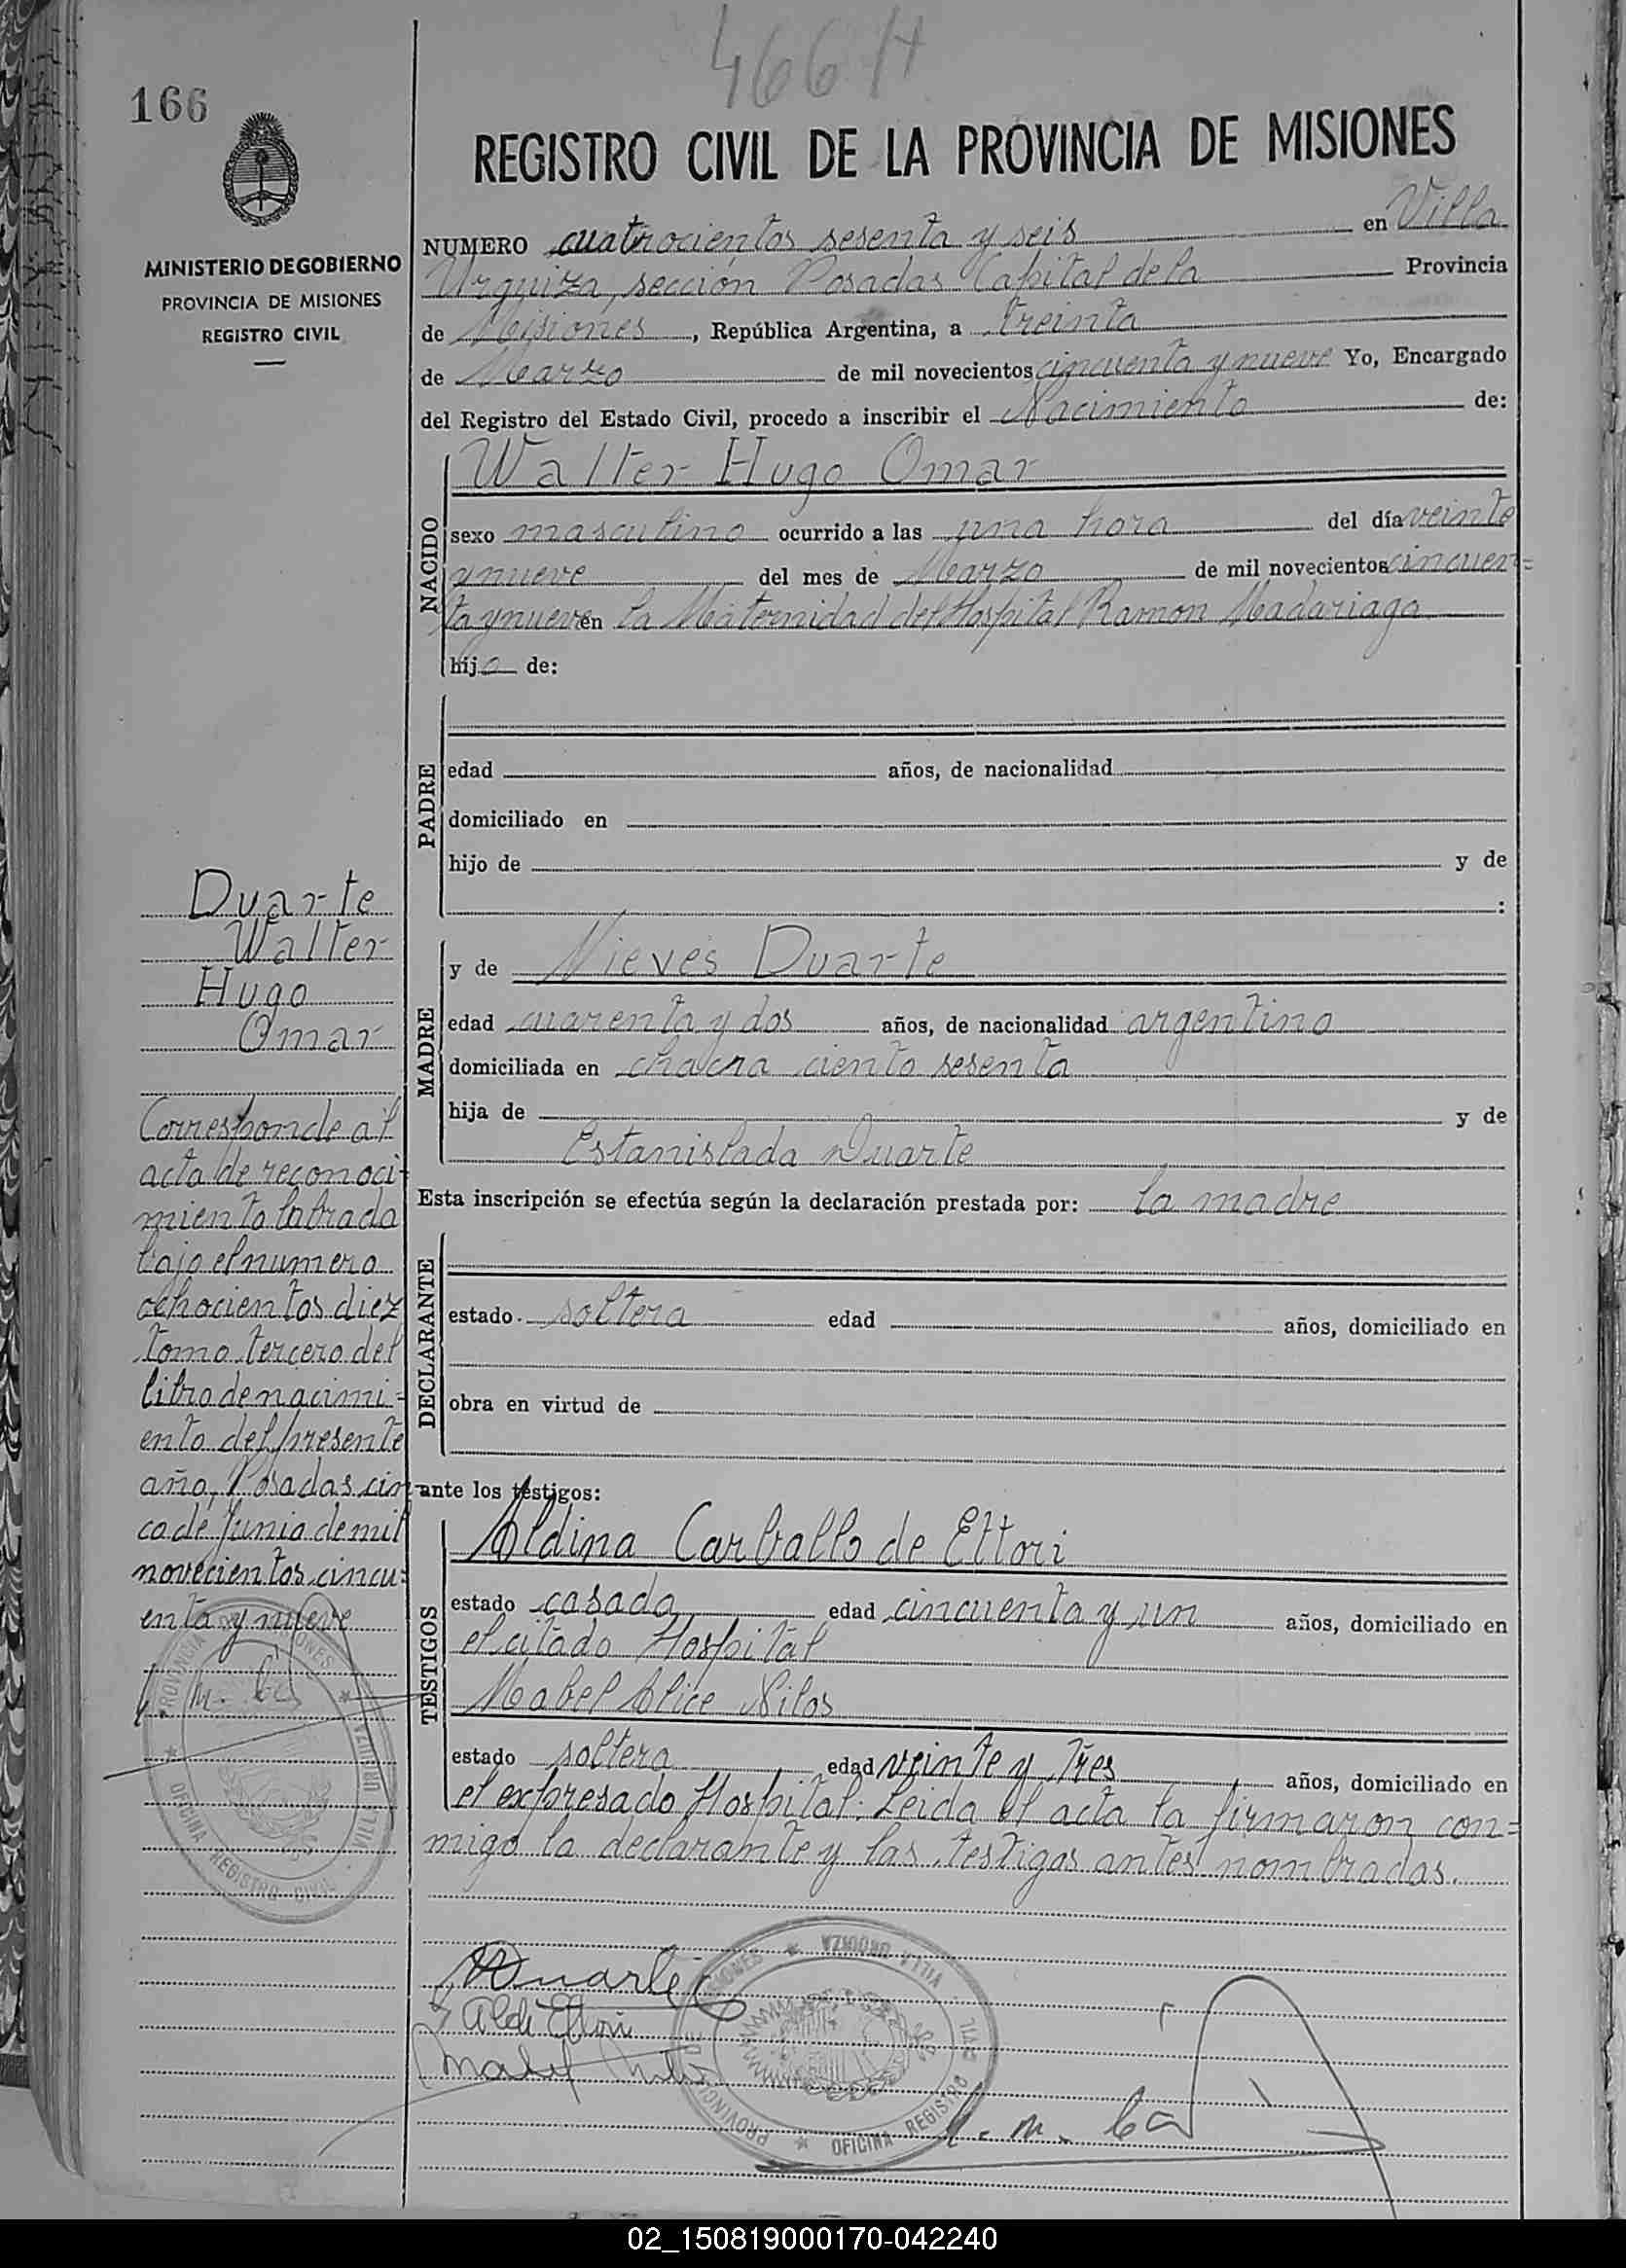 466 H
166
REGISTRO CIVIL DE LA PROVINCIA DE MISIONES
MINISTERIO DE GOBIERNO
PROVINCIA DE MISIONES
REGISTRO CIVIL
NUMERO cuatrocientos sesenta y seis en Villa
Urquiza, sección Posadas Capital de la Provincia
de Misiones, República Argentina, a treinta
de Marzo de mil novecientos cincuenta y nueve Yo, Encargado
del Registro del Estado Civil, procedo a inscribir el Nacimiento de:
NACIDO
Walter Hugo Omar
sexo masculino ocurrido a las una hora del día veinte
y nueve del mes de Marzo de mil novecientos cincuen=
ta y nueve en la Maternidad del Hospital Ramon Madariaga
hijo de:
PADRE
edad años, de nacionalidad
domiciliado en
hijo de y de
:
MADRE
y de Nieves Duarte
edad cuarenta y dos años, de nacionalidad argentino
domiciliada en chacra ciento sesenta
hija de y de
Estanislada Duarte
Esta inscripción se efectúa según la declaración prestada por: la madre
DECLARANTE
estado soltera edad años, domiciliado en
obra en virtud de
ante los testigos:
TESTIGOS
Aldina Carballo de Ettori
estado casada edad cincuenta y un años, domiciliado en
el citado Hospital
Mabel Alice
estado soltera edad veinte y tres años, domiciliado en
el expresado Hospital. Leida el acta la firmaron con=
migo la declarante y las testigos antes nombradas.
Duarte
Walter
Hugo
Omar
Corresponde al
acta de reconoci-
miento labrada
bajo el numero
ochocientos diez
tomo tercero del
libro de nacimi=
ento del presente
año, Posadas cin-
co de Junio de mil
novecientos cincu=
enta y nueve
PROVINCIA DE MISIONES
VILLA URQUIZA
OFICINA REGISTRO CIVIL
NDuarte
Alde Ettori
Mabel
PROVINCIA DE MISIONES
VILLA URQUIZA
OFICINA REGISTRO CIVIL
02_150819000170-042240